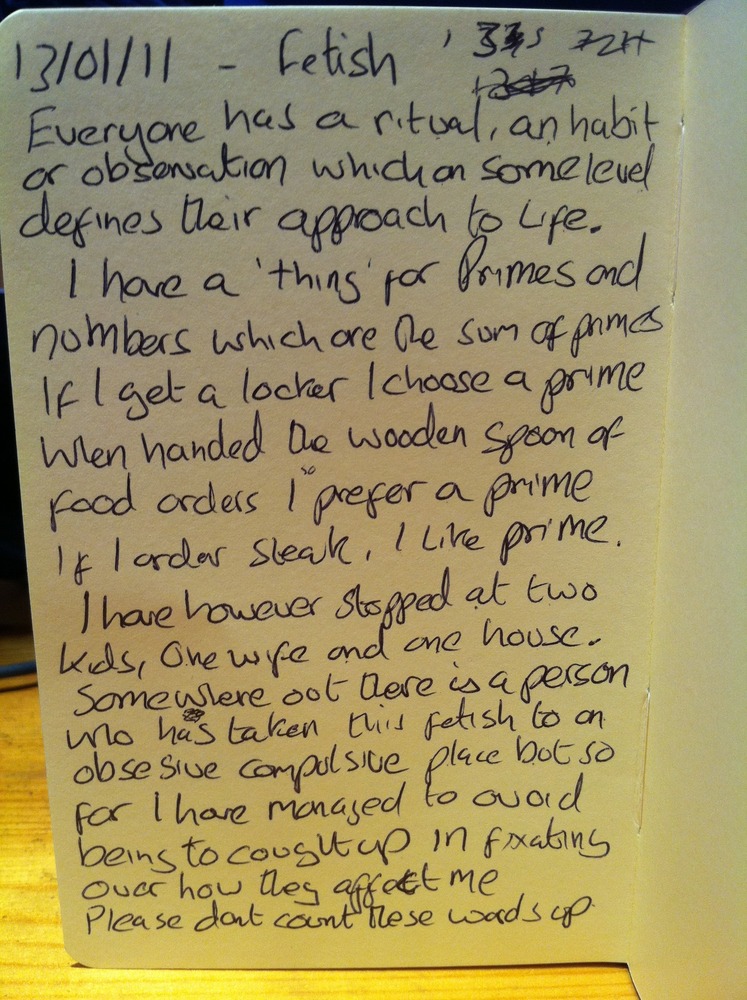 13/01/11 - Fetish
Everyone has a ritual, an habit
or observation which on some level
defines their approach to Life.
I have a 'thing' for Primes and
numbers which are the sum of primes
If I get a locker I choose a prime
When handed the wooden spoon of
food orders I prefer a prime
If I order steak, I like prime.
I have however stopped at two
kids, One wife and one house.
Somewhere out there is a person
who has taken this fetish to an
obsesive compulsive place but so
far I have managed to avoid
being to caught up in fixating
over how they affect me
Please dont count these words up.